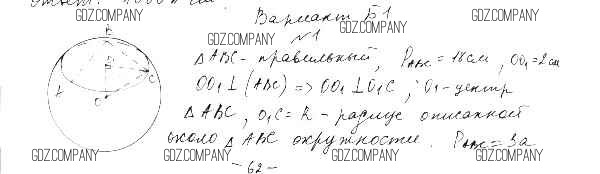 Ответ: 
GDZ.COMPANY
Вариант Б1
GDZ.COMPANY
GDZ.COMPANY
№1
B
ΔABC - правильный, P_ABC = 18 см, OO₁ = 2 см
A
C
O
OO₁ ⊥ (ABC) => OO₁ ⊥ O₁C, O₁ - центр
ΔABC, O₁C = R - радиус описанной
около ΔABC окружности. P_ABC = 3a
GDZ.COMPANY
GDZ.COMPANY
GDZ.COMPANY
GDZ.COMPANY
- 62 -